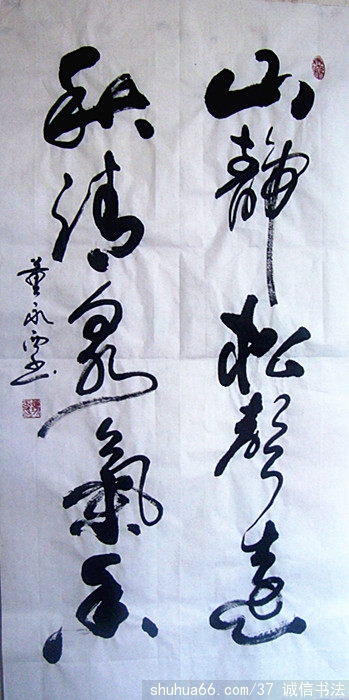 山靜松聲遠
秋清泉氣香
董永西書
shuhua66.com/37 诚信书法